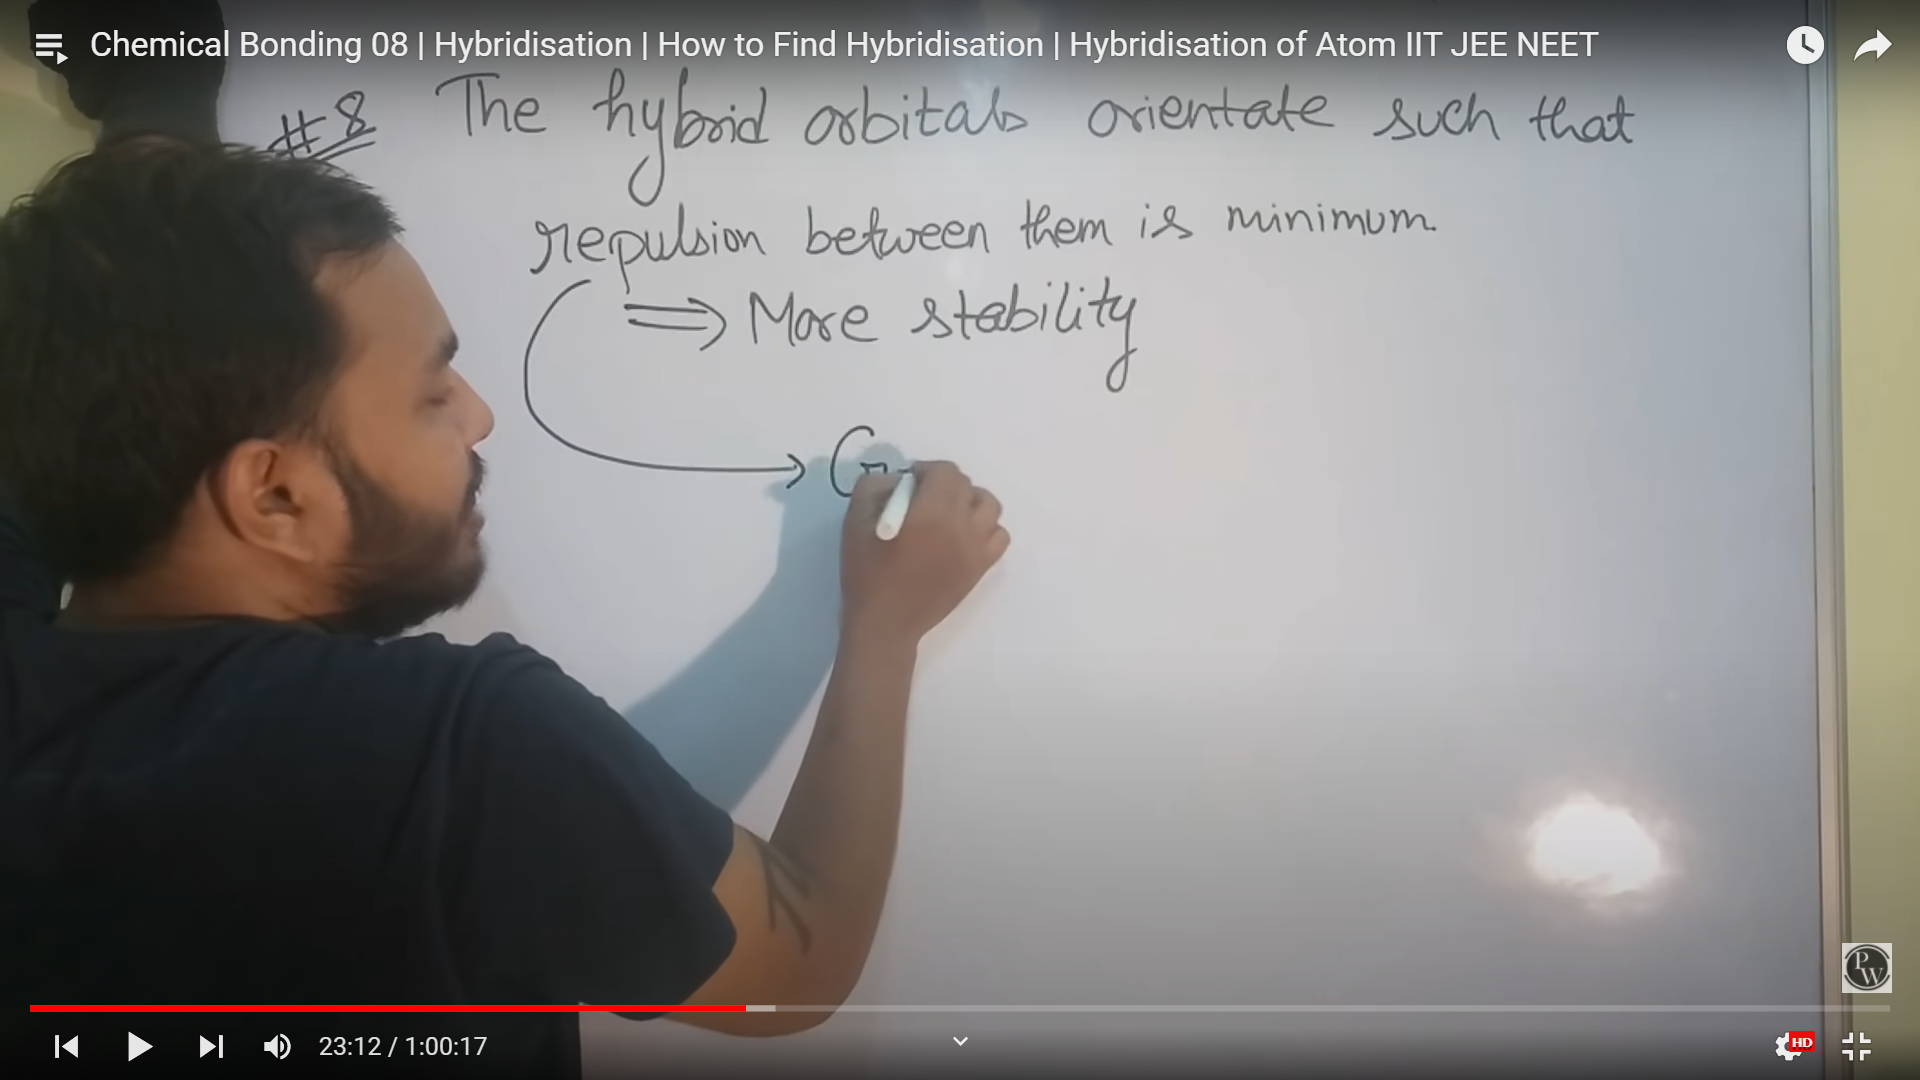 Chemical Bonding 08 | Hybridisation | How to Find Hybridisation | Hybridisation of Atom IIT JEE NEET
#8 The hybrid orbitals orientate such that
repulsion between them is minimum.
⇒ More stability
→ G
PW
23:12 / 1:00:17
HD